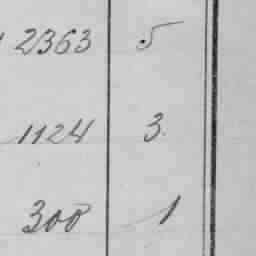 2363 5
1124 3
300 1